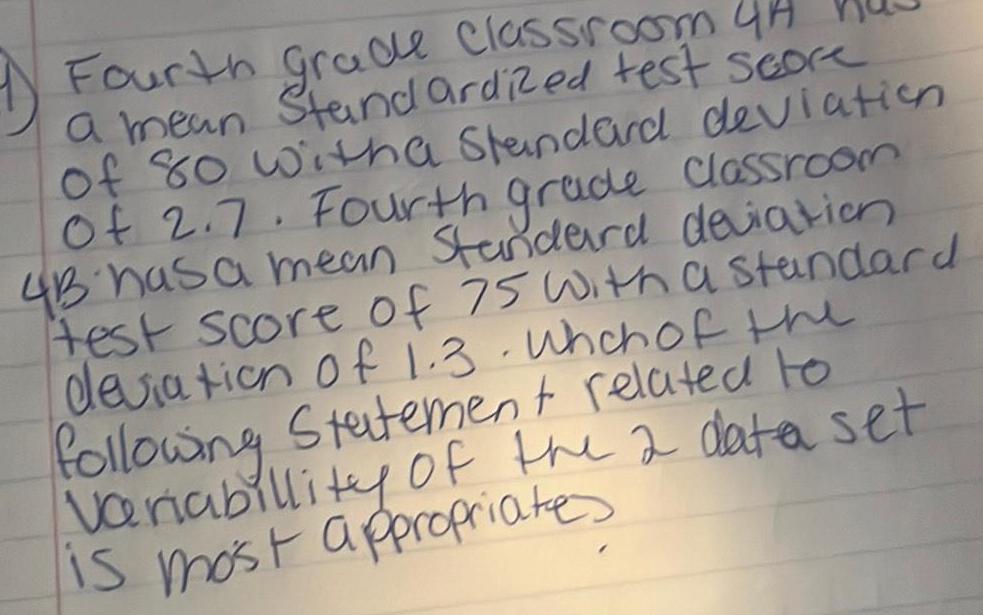 1) Fourth grade classroom 4A has
a mean Standardized test score
of 80 with a Standard deviation
of 2.7. Fourth grade classroom
4B has a mean Standard deviation
test score of 75 with a standard
deviation of 1.3. Which of the
following Statement related to
variabillity of the 2 data set
is most appropriate